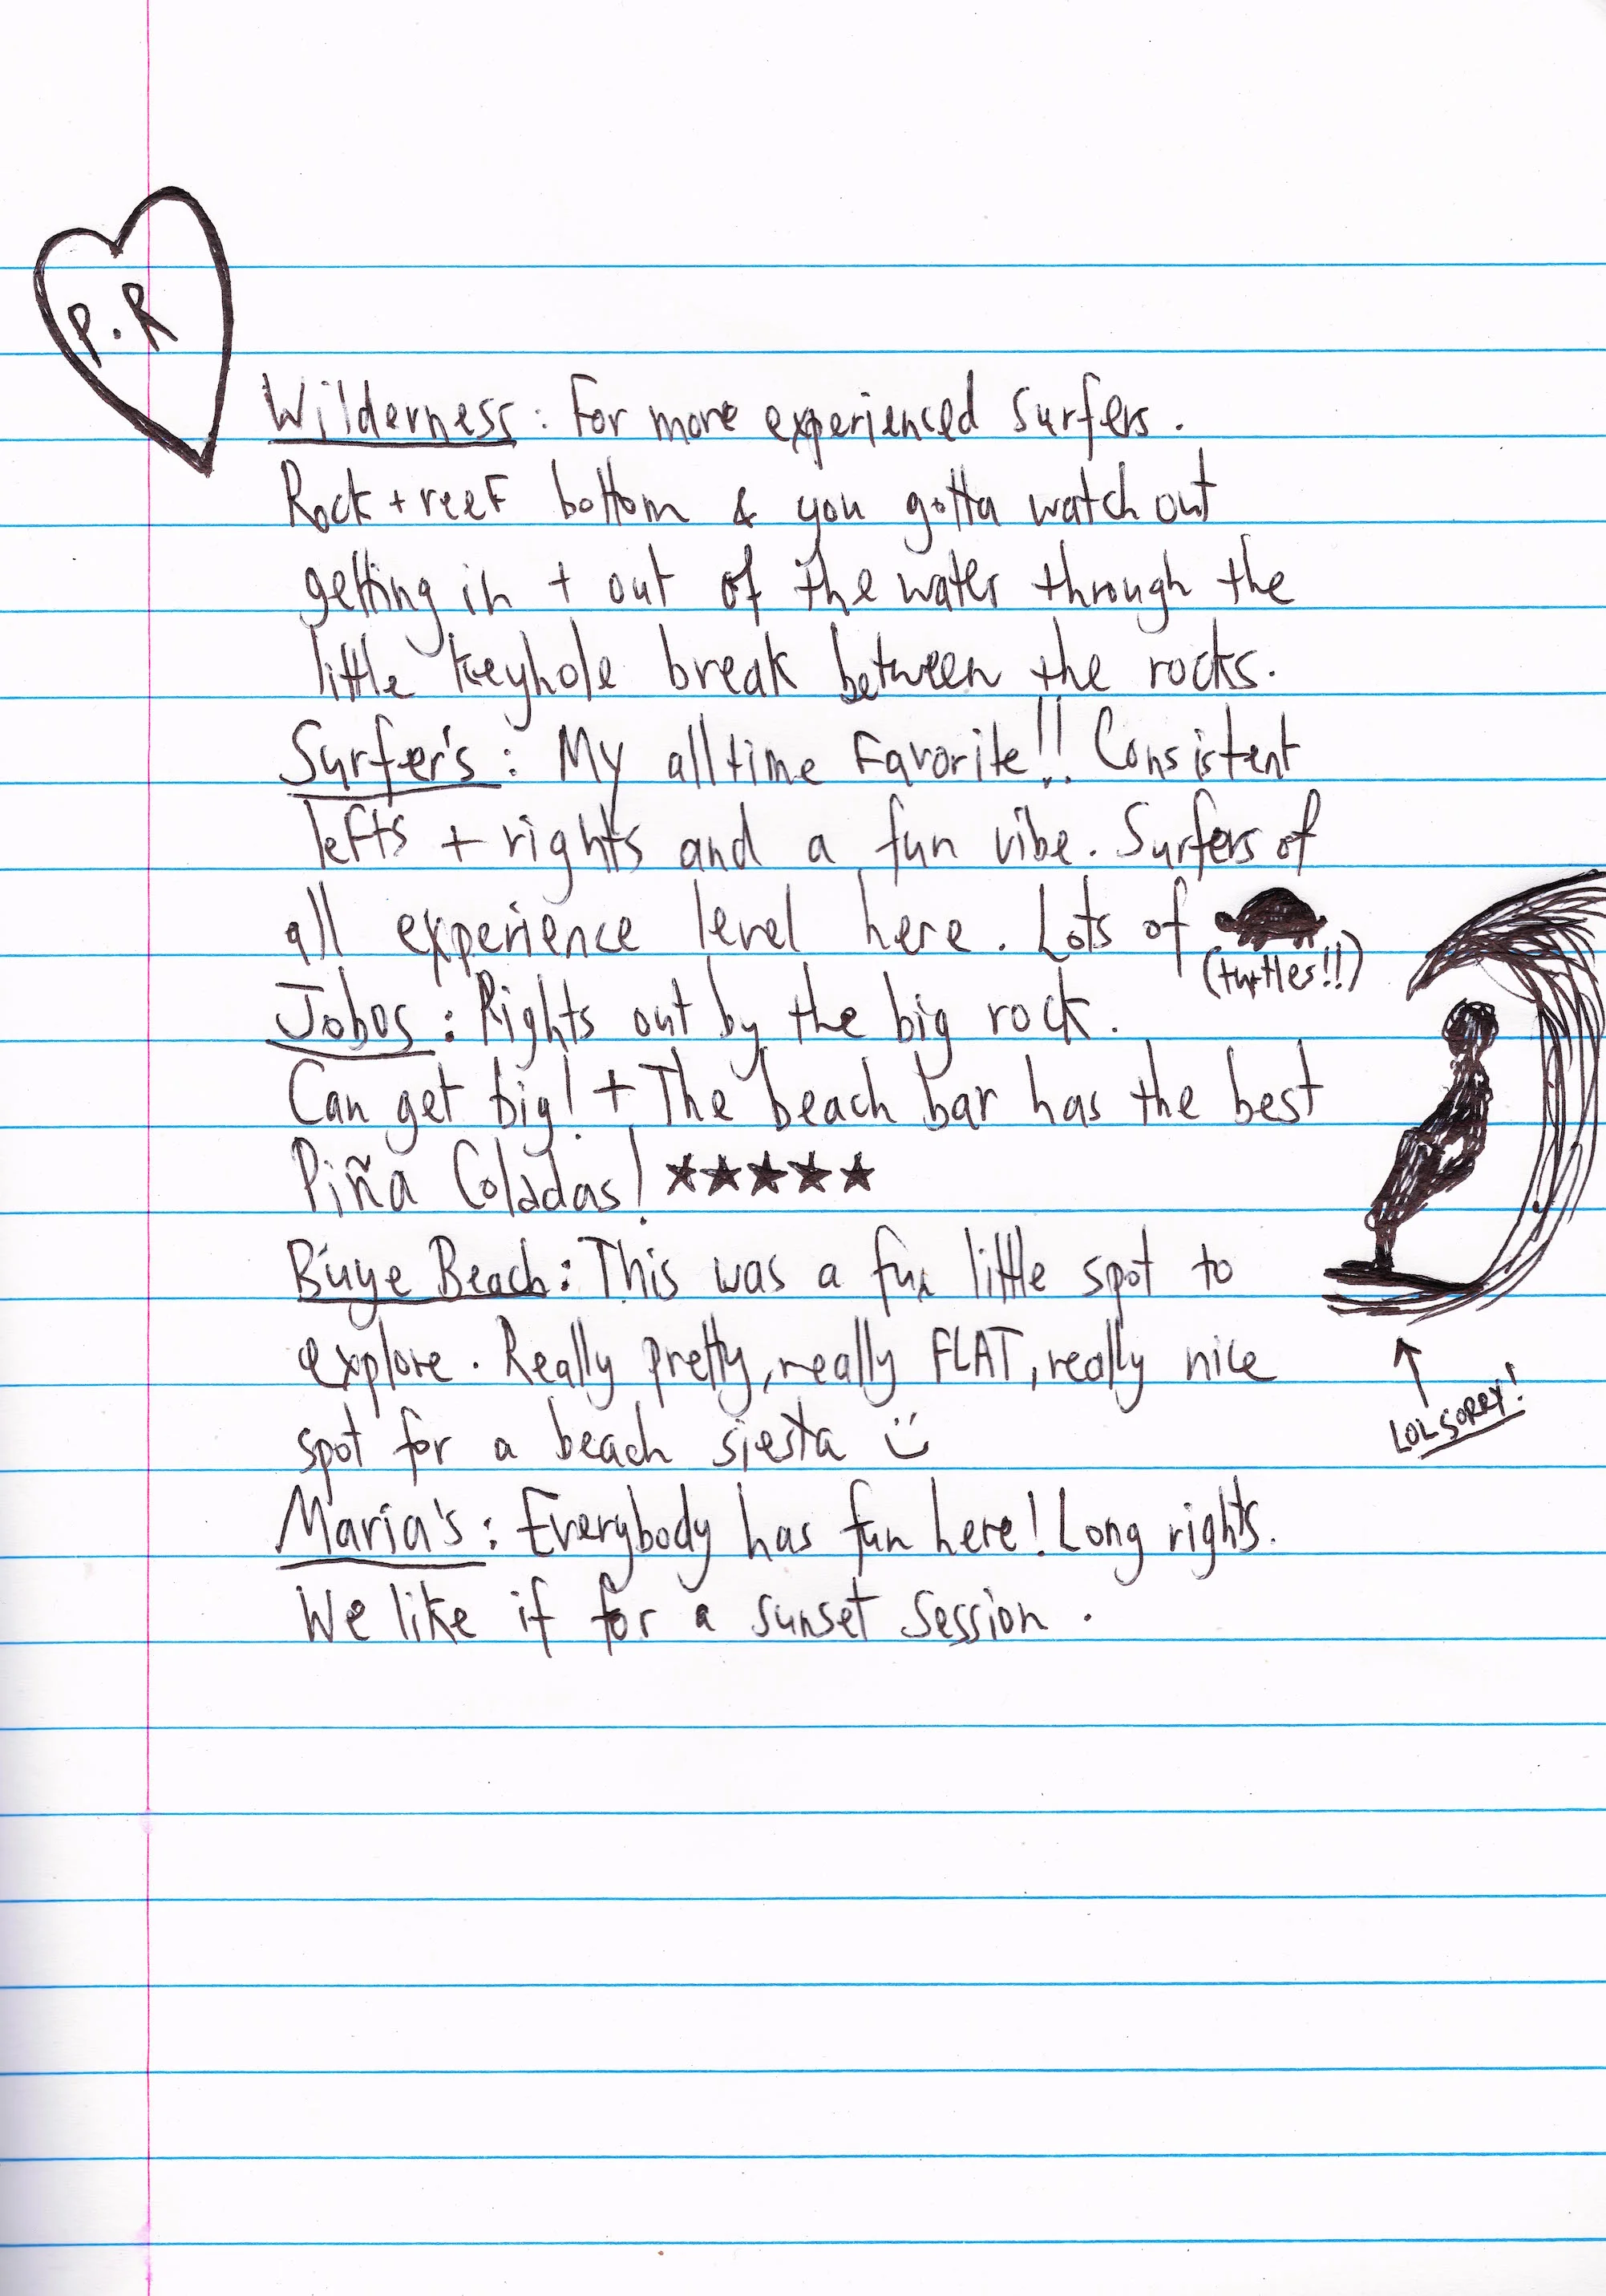 P.R
Wilderness: For more experienced surfers.
Rock + reef bottom & you gotta watch out
getting in + out of the water through the
little keyhole break between the rocks.
Surfer's: My all time Favorite!! Consistent
lefts + rights and a fun vibe. Surfers of
all experience level here. Lots of
(turtles!!)
Jobos: Rights out by the big rock.
Can get big! + The beach bar has the best
Piña Coladas! ★★★★★
Buye Beach: This was a fun little spot to
explore. Really pretty, really FLAT, really nice
spot for a beach siesta
LOL SORRY!
Maria's: Everybody has fun here! Long rights.
We like if for a sunset session.